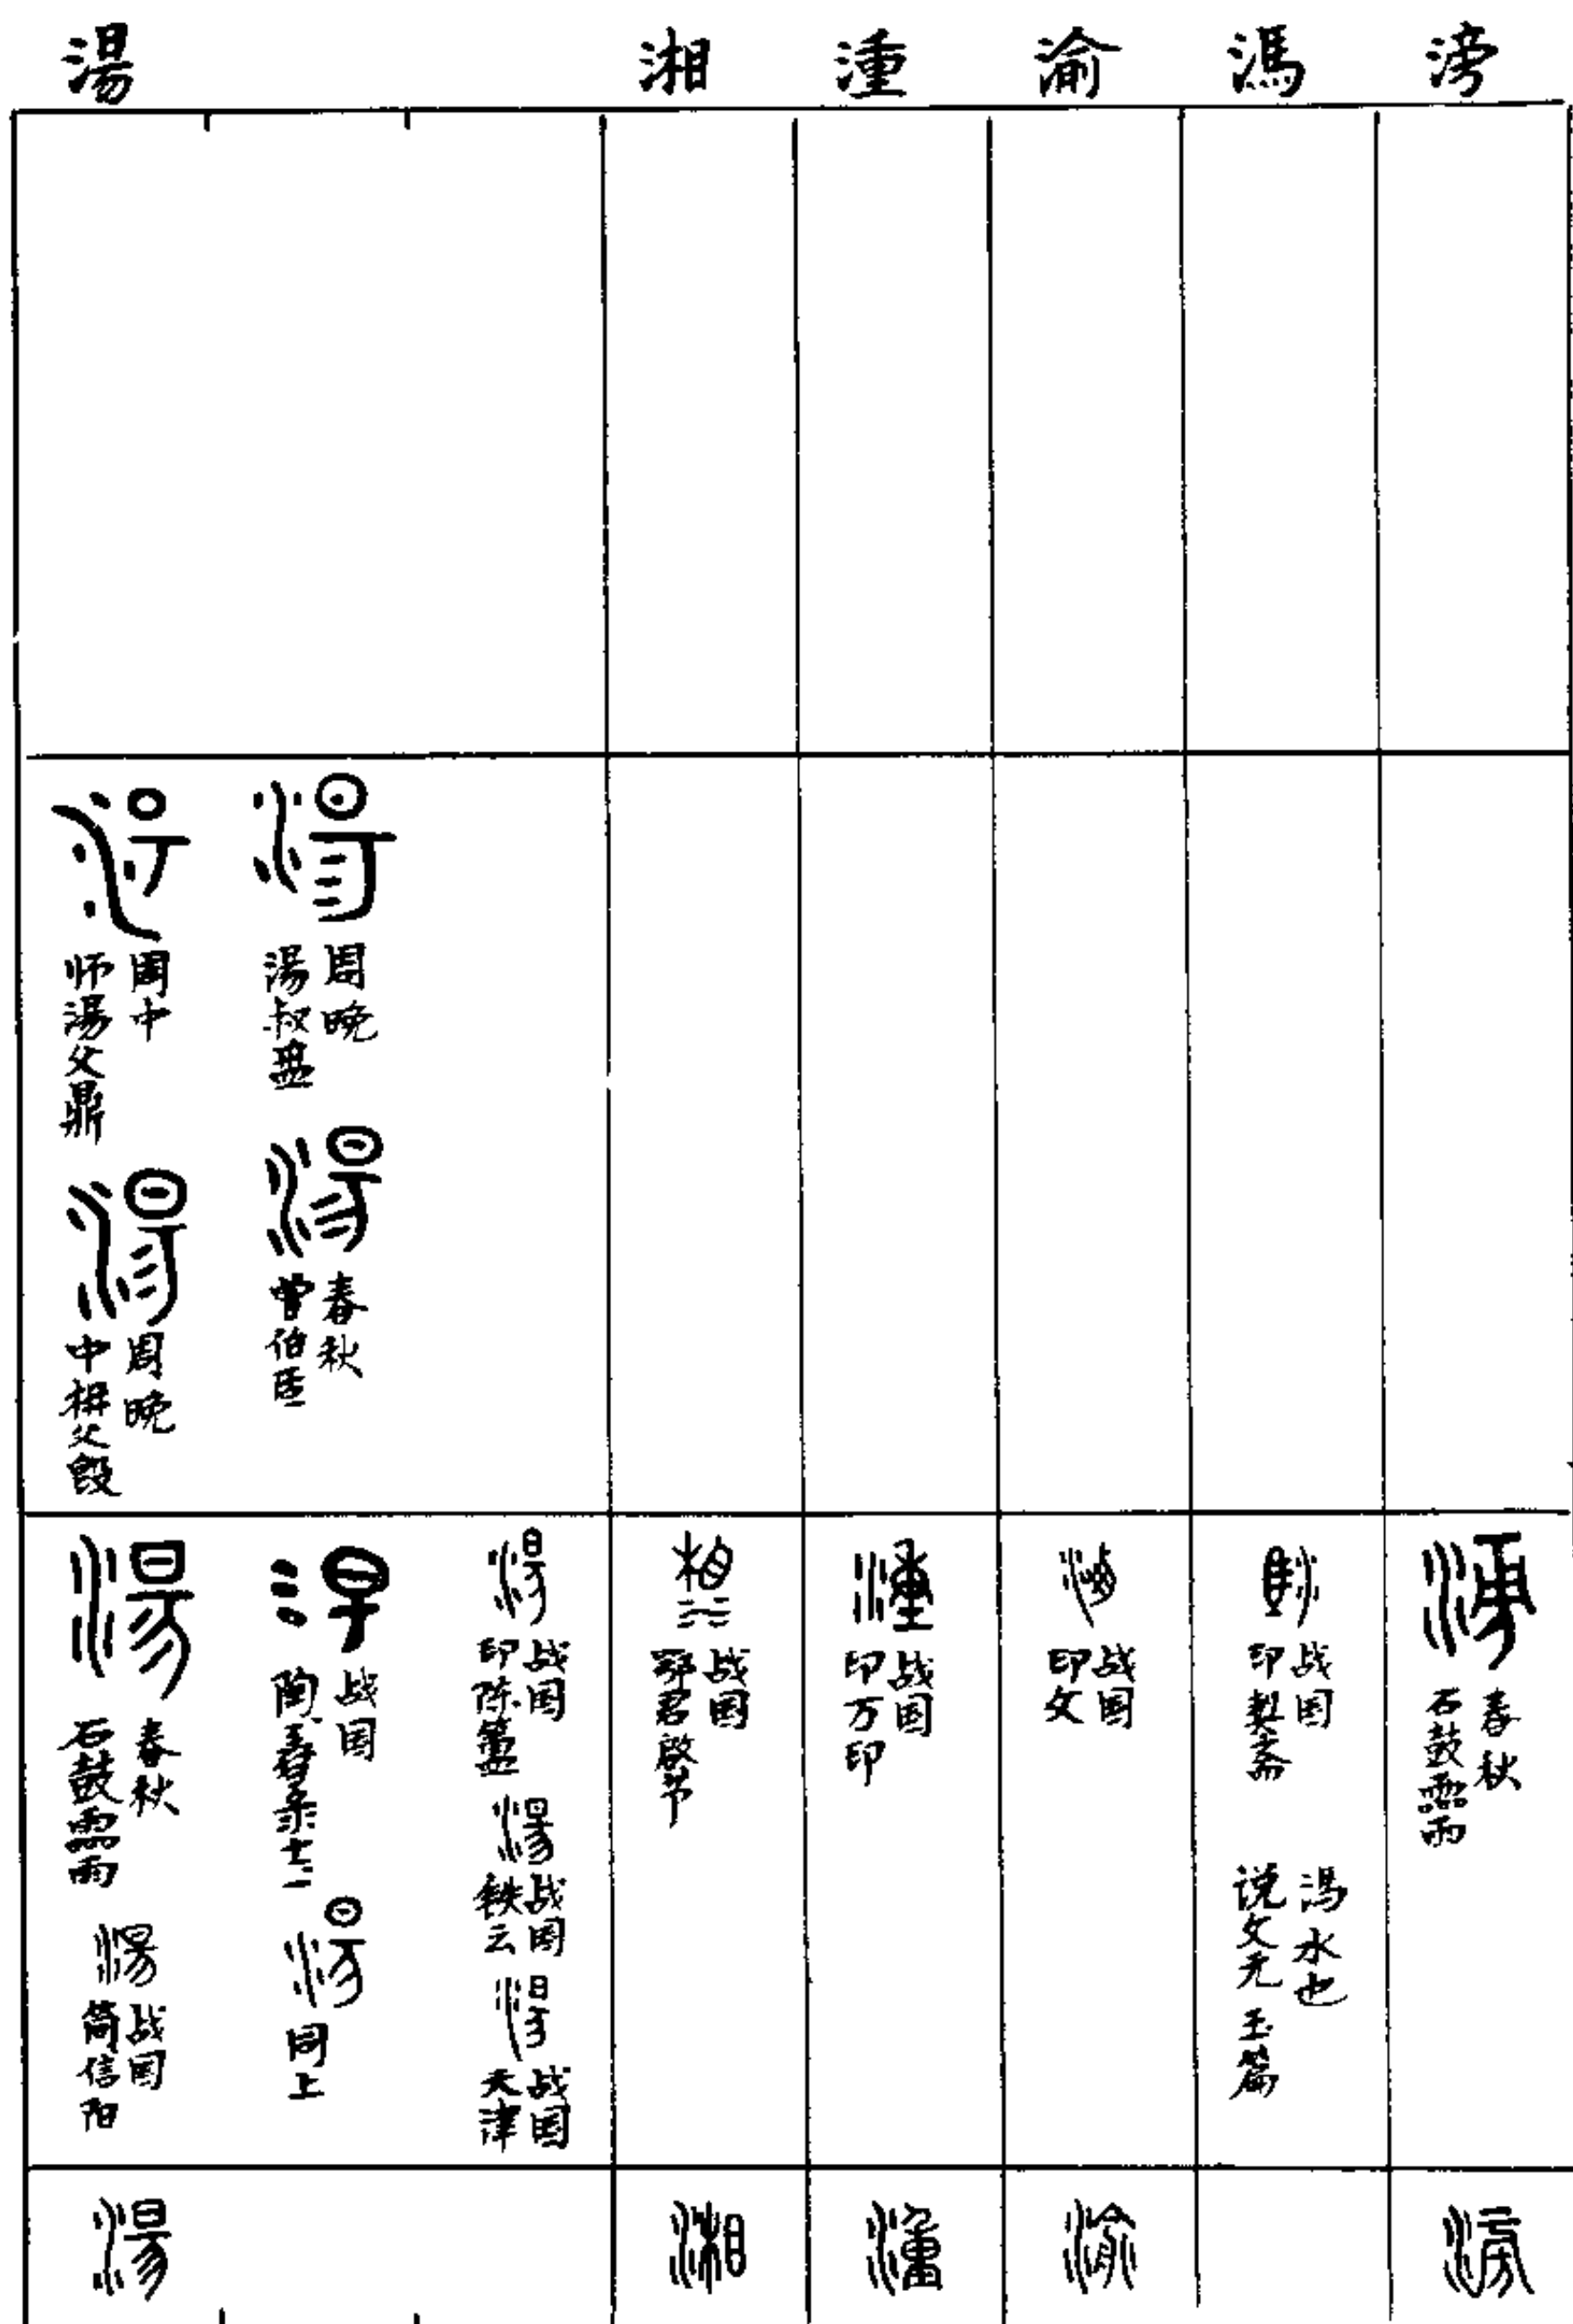 湯 湘 湩 渝 馮 滂
周中
师湯父鼎
周晚
湯叔盘
周晚
中枏父𣪘
春秋
曾伯
春秋
石鼓霝雨
战国
简信阳
战国
陶
同上
战国
印陈簠
战国
铁云
战国
天津
战国
鄂君啟节
战国
印万印
战国
印文
战国
印契斋
溤水也
说文无 玉篇
春秋
石鼓霝雨
湯 湘 湩 渝 滂